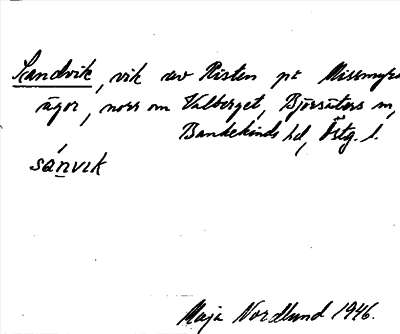 Sandvik, vik av Risten på Missmyra
ägor, norr om Valberget, Björsäters sn,
Bankekinds hd, Östg. l.
sánvik
Maja Nordlund 1946.